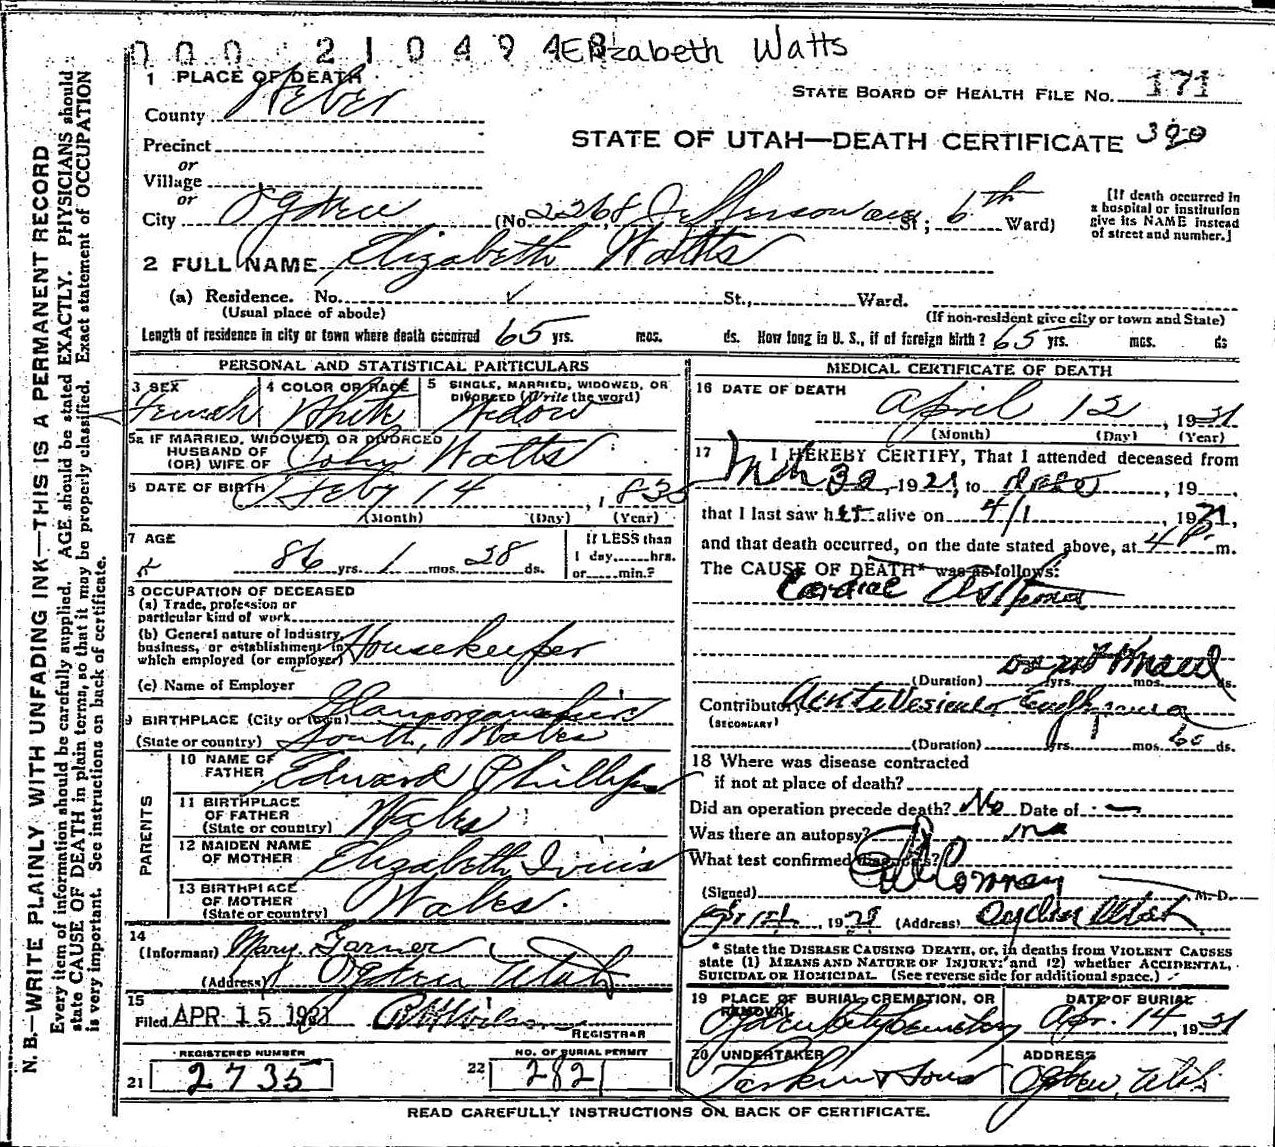 000 210494 8 Elizabeth Watts
1 PLACE OF DEATH
STATE BOARD OF HEALTH FILE NO. 171
County Weber
STATE OF UTAH—DEATH CERTIFICATE 390
Precinct
or
Village
or
City Ogden (No. 2268 Jefferson ave St; 6th Ward)
[If death occurred in
a hospital or institution
give its NAME instead
of street and number.]
2 FULL NAME Elizabeth Watts
(a) Residence. No. St., Ward.
(Usual place of abode) (If non-resident give city or town and State)
Length of residence in city or town where death occurred 65 yrs. mos. ds. How long in U. S., if of foreign birth? 65 yrs. mos. ds
PERSONAL AND STATISTICAL PARTICULARS
3 SEX 4 COLOR OR RACE 5 SINGLE, MARRIED, WIDOWED, OR
DIVORCED (Write the word)
Female White Widow
5a IF MARRIED, WIDOWED, OR DIVORCED
HUSBAND OF
(OR) WIFE OF John Watts
6 DATE OF BIRTH Feby 14, 1835
(Month) (Day) (Year)
7 AGE If LESS than
1 day hrs.
86 yrs. 1 mos. 28 ds. or min.?
8 OCCUPATION OF DECEASED
(a) Trade, profession or
particular kind of work
(b) General nature of Industry,
business, or establishment in
which employed (or employer) Housekeeper
(c) Name of Employer
9 BIRTHPLACE (City or town) Glamorganshire
(State or country) South Wales
PARENTS
10 NAME OF
FATHER Edward Phillips
11 BIRTHPLACE
OF FATHER
(State or country) Wales
12 MAIDEN NAME
OF MOTHER Elizabeth
13 BIRTHPLACE
OF MOTHER
(State or country) Wales.
14
(Informant) Mary Garner
(Address) Ogden Utah
15
Filed APR 15 1921
REGISTRAR
REGISTERED NUMBER
21 2735
NO. OF BURIAL PERMIT
22 282
MEDICAL CERTIFICATE OF DEATH
16 DATE OF DEATH
April 12, 1921
(Month) (Day) (Year)
17 I HEREBY CERTIFY, That I attended deceased from
1921, to date, 19
that I last saw her alive on 4/1, 1921,
and that death occurred, on the date stated above, at 4 P. m.
The CAUSE OF DEATH* was as follows:
Cardiac Asthma
(Duration) yrs. mos. ds.
Contributory Acute Vesicular
(SECONDARY)
(Duration) yrs. mos. ds.
18 Where was disease contracted
if not at place of death?
Did an operation precede death? No Date of
Was there an autopsy? no
What test confirmed diagnosis?
(Signed) Conroy M. D.
1921 (Address) Ogden Utah
* State the DISEASE CAUSING DEATH, or, in deaths from VIOLENT CAUSES
state (1) MEANS AND NATURE OF INJURY; and (2) whether ACCIDENTAL,
SUICIDAL OR HOMICIDAL. (See reverse side for additional space.)
19 PLACE OF BURIAL, CREMATION, OR
REMOVAL DATE OF BURIAL
Ogden City Cemetery Apr. 14, 1921
20 UNDERTAKER ADDRESS
Larkin & Sons Ogden, Utah
READ CAREFULLY INSTRUCTIONS ON BACK OF CERTIFICATE.
N. B.—WRITE PLAINLY WITH UNFADING INK—THIS IS A PERMANENT RECORD
Every item of information should be carefully supplied. AGE should be stated EXACTLY. PHYSICIANS should
state CAUSE OF DEATH in plain terms, so that it may be properly classified. Exact statement of OCCUPATION
is very important. See instructions on back of certificate.